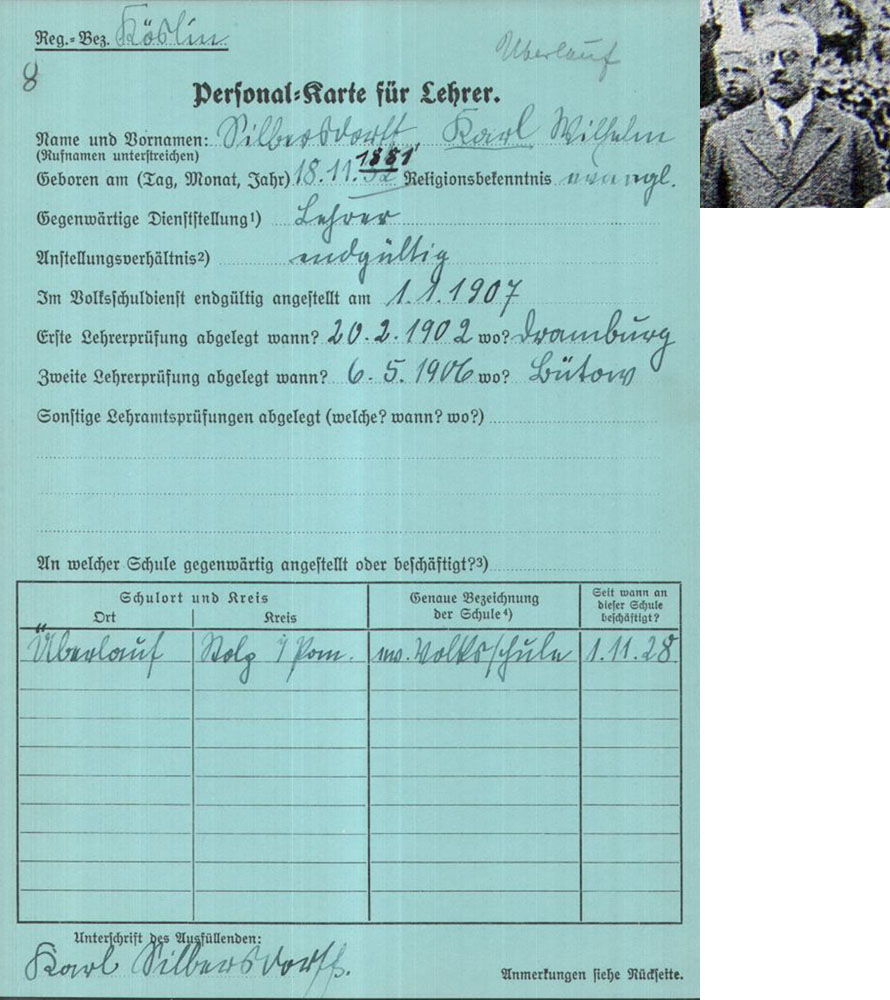 Reg.-Bez. Köslin
Überlauf
8
Personal-Karte für Lehrer.
Name und Vornamen: Silbersdorff Karl Wilhelm
(Rufnamen unterstreichen)
1881
Geboren am (Tag, Monat, Jahr) 18.11. Religionsbekenntnis evangl.
Gegenwärtige Dienststellung¹) Lehrer
Anstellungsverhältnis²) endgültig
Im Volksschuldienst endgültig angestellt am 1.1.1907
Erste Lehrerprüfung abgelegt wann? 20.2.1902 wo? Dramburg
Zweite Lehrerprüfung abgelegt wann? 6.5.1906 wo? Bütow
Sonstige Lehramtsprüfungen abgelegt (welche? wann? wo?)
An welcher Schule gegenwärtig angestellt oder beschäftigt?³)
Schulort und Kreis
Ort Kreis
Genaue Bezeichnung
der Schule⁴)
Seit wann an
dieser Schule
beschäftigt?
Überlauf Stolp i/Pom. ev. Volksschule 1.11.28
Unterschrift des Ausfüllenden:
Karl Silbersdorff.
Anmerkungen siehe Rückseite.